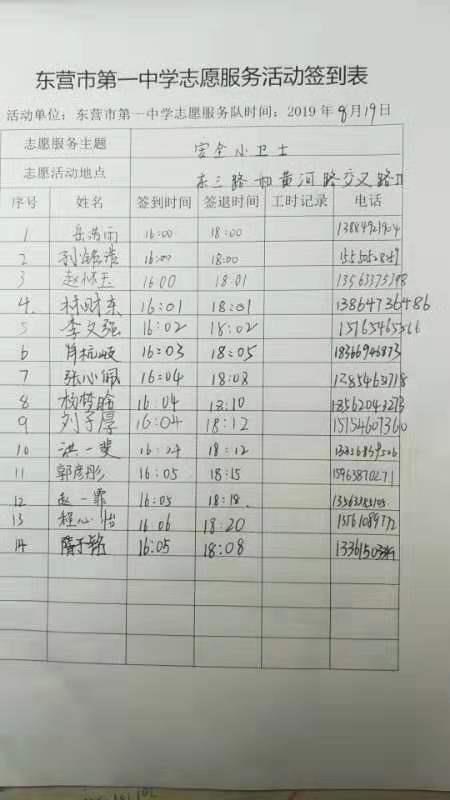 东营市第一中学志愿服务活动签到表
活动单位：东营市第一中学志愿服务队时间：2019 年 8月19日
志愿服务主题 安全小卫士
志愿活动地点 东三路和黄河路交叉路口
序号 姓名 签到时间 签退时间 工时记录 电话
1 16:00 18:00
2 16:00 18:00
3 赵怀玉 16:00 18:01
4. 林财东 16:01 18:01 13864736486
5 李文强 16:02 18:02
6 肖杭岐 16:03 18:05 18366946873
7 张心佩 16:04 18:08
8 杨梦晗 16:04 18:10 18562043273
9 刘子厚 16:04 18:12 15154607360
10 洪一斐 16:24 18:12
11 郭彦彤 16:05 18:15 15963870271
12 赵一霏 16:05 18:18
13 程心怡 16:06 18:20 15761089772
14 16:05 18:08